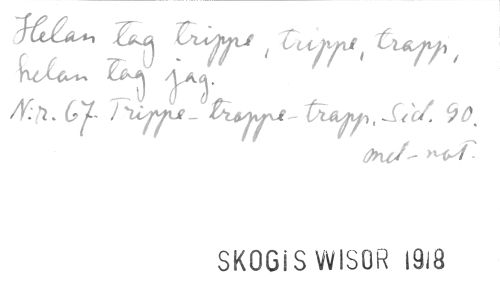 Helan tag trippe, trippe, trapp,
helan tag jag.
N:r. 67. Trippe-trappe-trapp. Sid. 90.
mel-not.
SKOGIS WISOR 1918